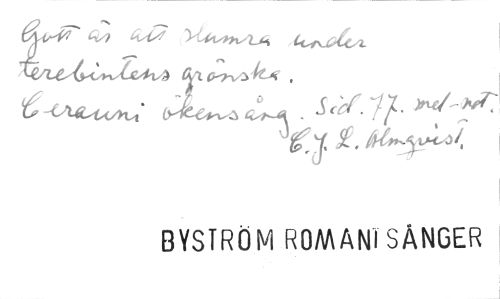 Gott är att slumra under
terebintens grönska.
Cerauni ökensång. Sid. 77. med-not.
C. J. L. Almqvist.
BYSTRÖM ROMANTSÅNGER